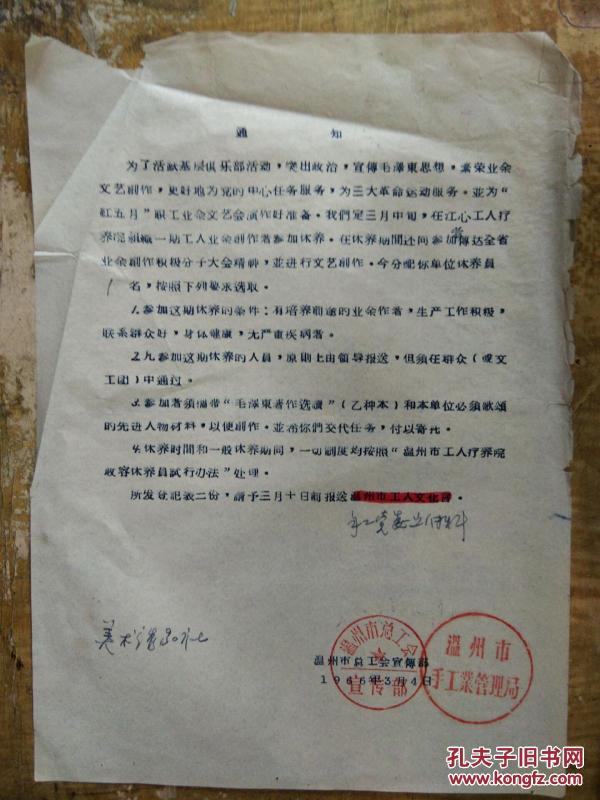 通 知
为了活跃基层俱乐部活动，突出政治，宣傳毛澤東思想，繁荣业余
文艺創作，更好地为党的中心任务服务，为三大革命运动服务。並为“
紅五月”职工业余文艺会演作好准备。我們定三月中旬，在江心工人疗
养院組織一期工人业余創作者参加休养。在休养期間还向参加者傳达全省
业余創作积极分子大会精神，並进行文艺創作。今分配你单位休养員
1 名，按照下列要求选取。
1.参加这期休养的条件：有培养前途的业余作者，生产工作积极，
联系群众好，身体健康，无严重疾病者。
2.凡参加这期休养的人員，原則上由領导报送，但须在群众（或文
工团）中通过。
3.参加者須攜带“毛澤東著作选讀”（乙种本）和本单位必须歌頌
的先进人物材料，以便創作。並希你們交代任务，付以寄托。
4.休养时間和一般休养期同，一切制度均按照“温州市工人疗养院
收容休养員試行办法”处理。
所发登記表二份，請予三月十日前报送温州市工人文化宫。
美术
温州市总工会宣傳部
1966年3月4日
温州市总工会
宣传部
温州市
手工業管理局
孔夫子旧书网
www.kongfz.com